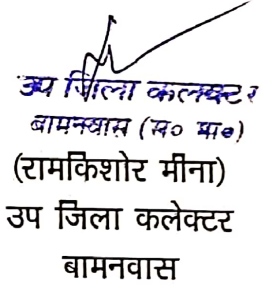 उप जिला कलक्टर
बामनवास (स० मा०)
(रामकिशोर मीना)
उप जिला कलेक्टर
बामनवास